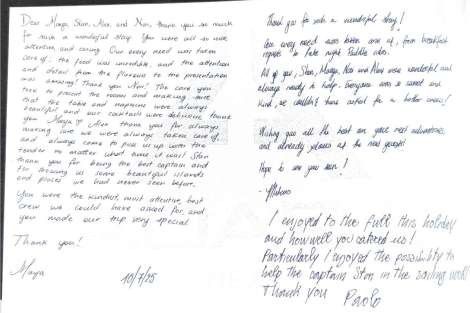 Dear Maya, Stan, Alex, and Noa, thank you so much
for such a wonderful stay. You were all so nice,
attentive, and caring. Our every need was taken
care of; the food was incredible, and the attention
and detail from the flavours to the presentation
was amazing! Thank you Noa! The care you
took to present the rooms and making sure
that the table and napkins were always
beautiful and our cocktails were delicious thank
you Maya. thank you for always
making sure we were always taken care of,
and always come to pick us up with the
tender no matter what time it was! Stan
thank you for being the best captain and
for showing us some beautiful islands
and places we had never seen before.
You were the kindest, most attentive, best
crew we could have asked for, and
you made our trip very special
Thank you!
Maya 10/7/25
Thank you for such a wonderful stay!
Our every need was taken care of, from breakfast
to late night
All of you, Stan, Maya, Noa and Alex were wonderful and
always ready to help. Everyone was so sweet and
kind, we couldn't have asked for a better crew!
Wishing you all the best on your next adventures
and already jealous of the next guests!
Hope to see you soon!
I enjoyed to the full this holiday
and how well you catered us!
Particularly I enjoyed the possibility to
help the captain Stan in the sailing work!
Thank you Paolo